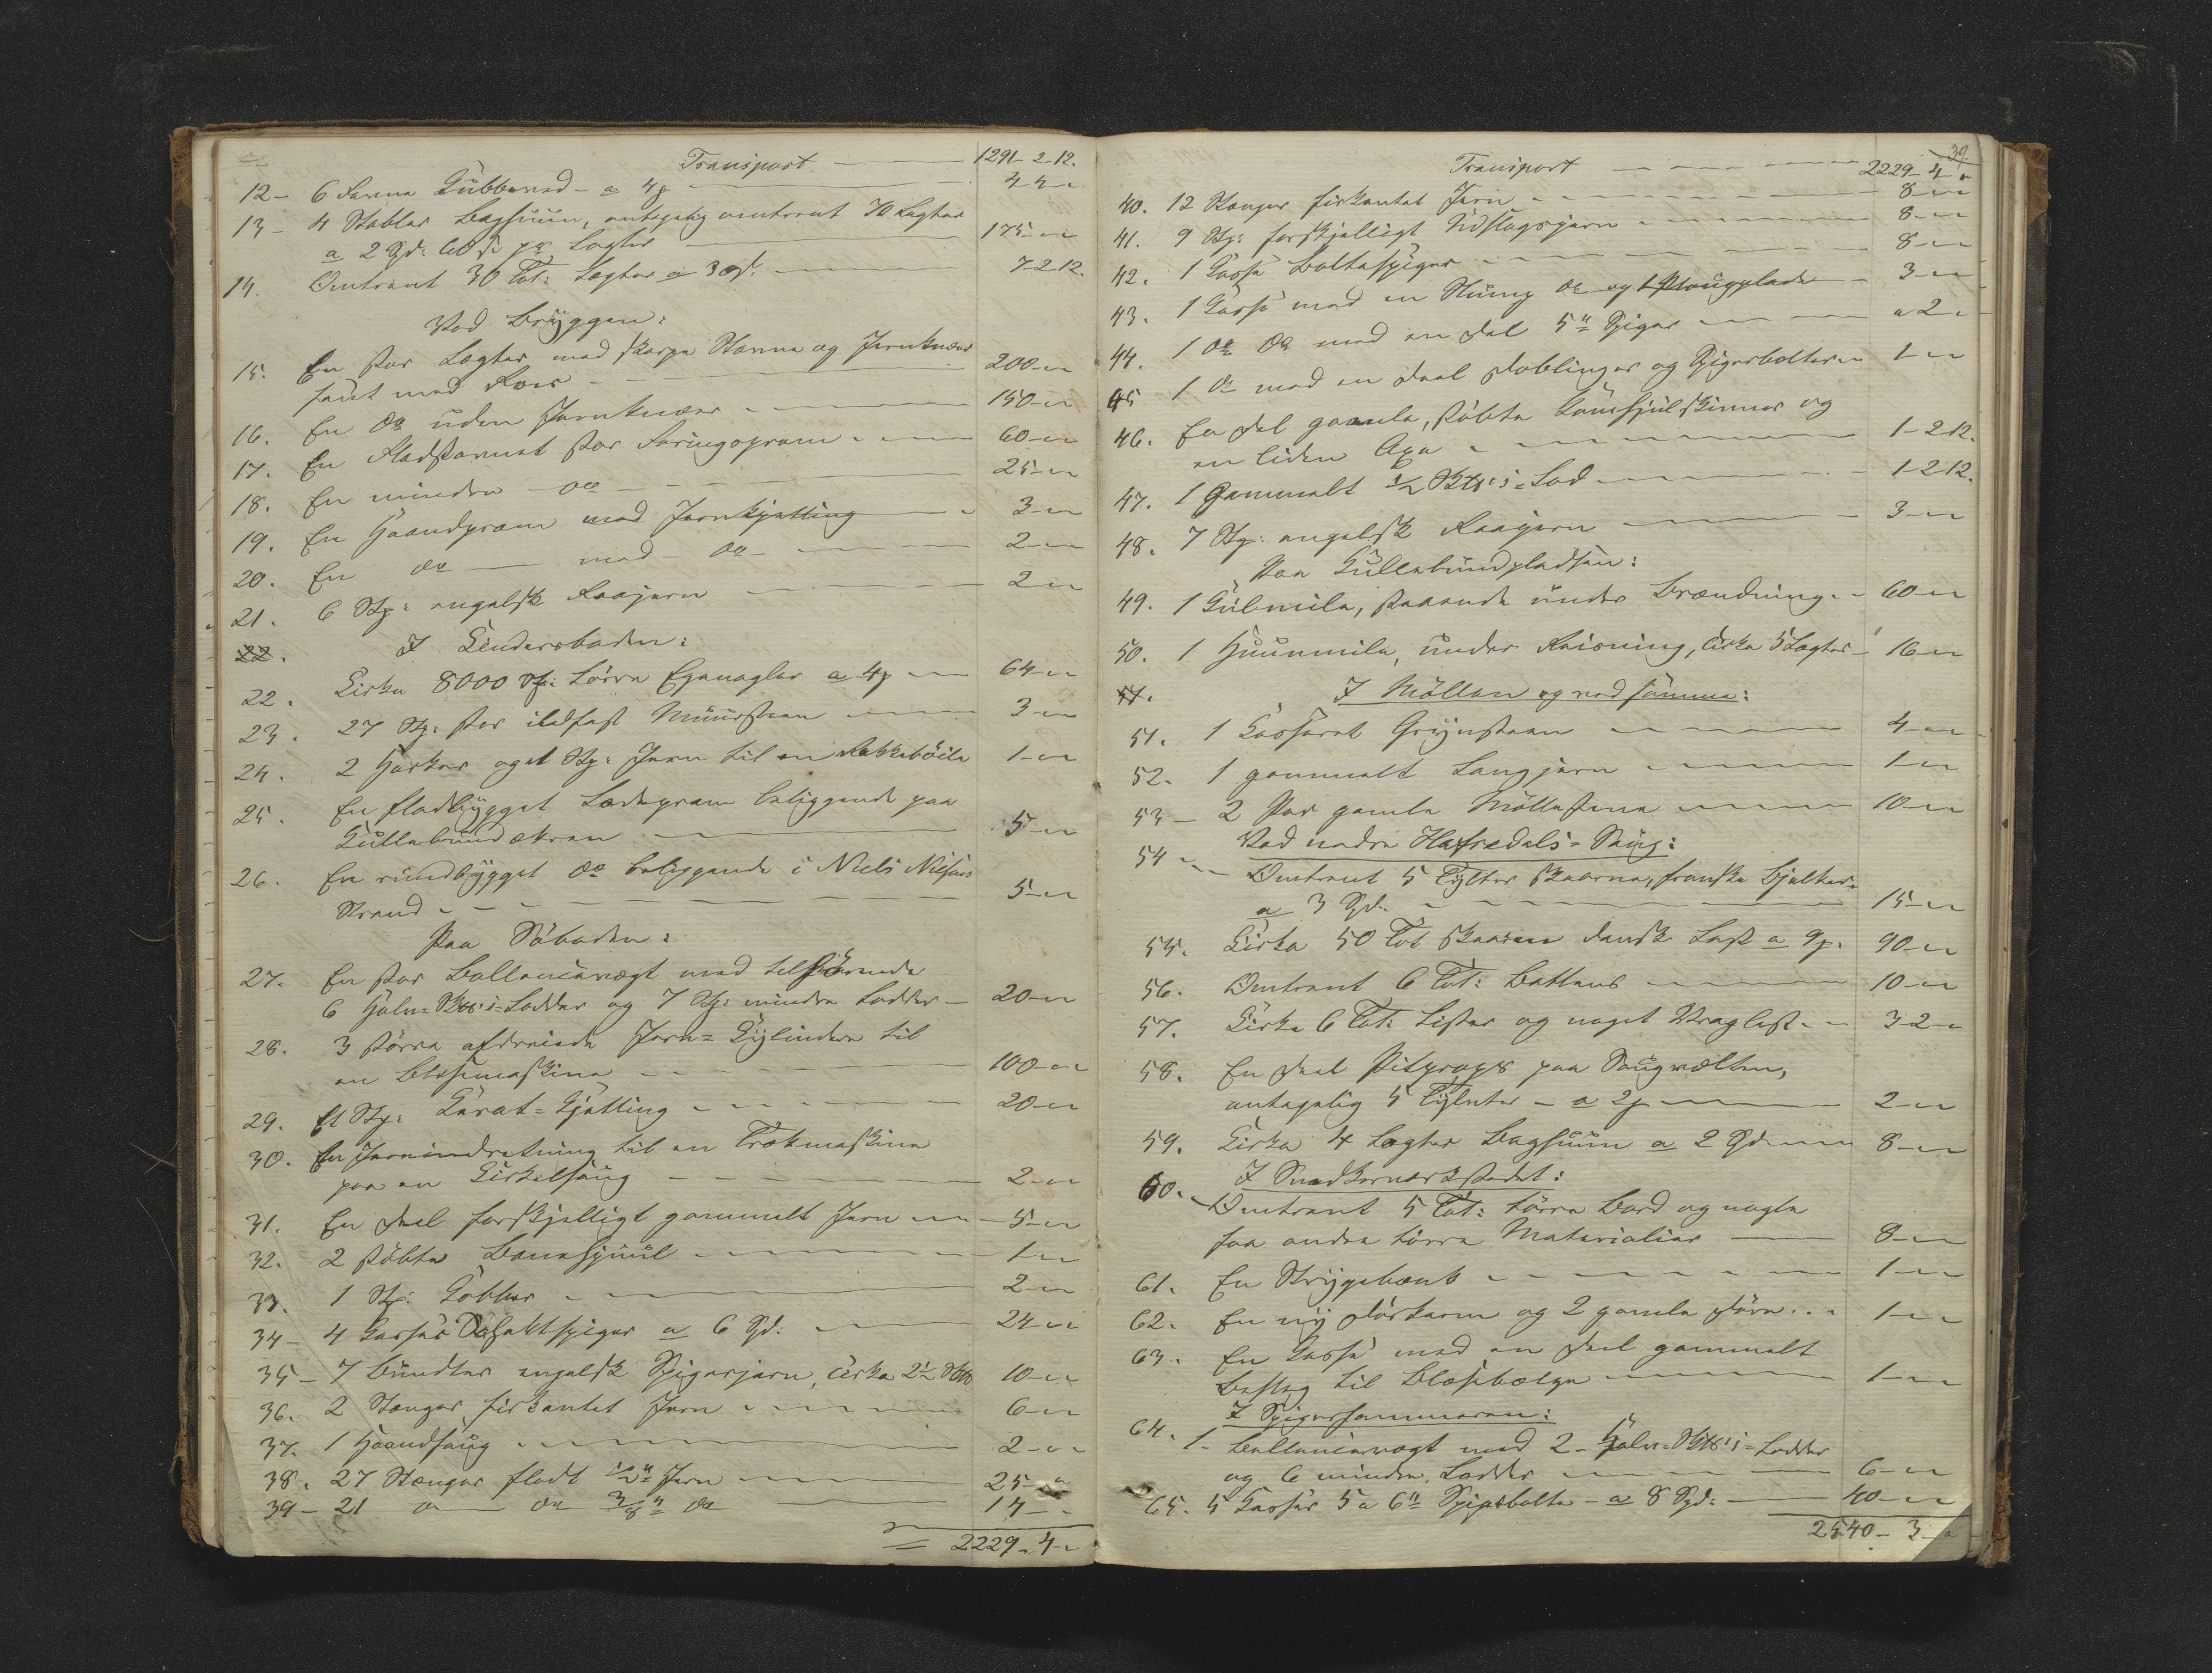 Transport 1291-2-12.
12- 6 Favne Kubbeved - a 4 44-"
13- 4 Stabler Baghuun, antagelig omtrent 70 Lægter
a 2 Spd: 60 s pr Lægter 175-""
14. Omtrent 30 Tvt: Lægter a 30 s. 7-2-12.
Ved Bryggen:
15. En stor Lægter med skarpe Stevne og Jernknær
samt med Roer 200-""
16. En do uden Jernknæer 150-""
17. En Fladstevnet stor Føringspram 60-""
18. En mindre do 25-""
19. En Haandpram med Jernkjætting 3-""
20. En do med do 2-""
21. 6 Stp: engelsk Raajern 2-""
22. I Kendersboden:
22. Cirka 8000 Stp: tørre Egenagler a 4 64-""
23. 27 Stp: stor ildfast Muursteen 3-""
24. 2 Harker og et Stp: Jern til en Rakkebøile 1-""
25. En fladbygget Lædepram beliggende paa
Kullebundækren 5-""
26. En rundbygget do beliggende i Niels Nilsens
Strand 5-""
Paa Søboden:
27. En stor Ballancevægt med tilhørende
6 Halv-Sk℔'s-Lodder og 7 Stp: mindre Lodder 20-""
28. 3 større afdreiede Jern-Cylindere til
en Blæsemaskine 100-""
29. Et Stp: Kjætting 20-""
30. En Jernindretning til en Trækmaskine
paa en Cirkelsaug 2-""
31. En Deel forskjelligt gammelt Jern 5-""
32. 2 støbte Banehjuul 1-""
33. 1 Stp: Kobber 2-""
34- 4 Kasser Defektspiger a 6 Spd: 24""
35- 7 Bundter engelsk Spigerjern, cirka 2½ Sk℔ 10-""
36. 2 Stænger firkantet Jern 6-""
37. 1 Haandsaug 2-""
38. 27 Stænger fladt ½" Jern 25-"
39- 21 do do 3/8" do 14-"
2229-4-"
39.
Transport 2229-4-"
40. 12 Stænger firkantet Jern 8-""
41. 9 Stp: forskjelligt Udslagsjern 8-""
42. 1 Kasse Boltespiger 8-""
43. 1 Kasse med en Slump do og 1 Plougplade 3-""
44. 1 do do med en Del 5" Spiger "2-"
45 1 do med en Deel Doblinger og Spigerbolter 1-""
46. En Del gamle, støbte Kamhjulskinner og
en liden Axe 1-2-12.
47. 1 Gammelt ½ Sk℔'s-Lod 1-2-12.
48. 7 Stp: engelsk Raajern 3-""
Paa Kullebundpladsen:
49. 1 Kubmile, staaende under Brænding 60-""
50. 1 Huunmile, under Reisning, cirka 5 Lægter 16-""
51. I Møllen og ved samme:
51. 1 Kasseret Grynsteen 4-""
52. 1 gammelt Langjern 1-""
53- 2 Par gamle Møllestene 10-""
Ved nedre Hafredals-Saug:
54 Omtrent 5 Tylter skaarne, franske Bjelker
a 3 Spd. 15-""
55. Cirka 50 Tvt skaaren dansk Last a 9. 90-""
56. Omtrent 6 Tvt: Battens 10-""
57. Cirka 6 Tvt: Lister og noget Vraglast 3-2-"
58. En Deel Pitprops paa Saugvælten,
antagelig 5 Tylvter - a 2 2-""
59. Cirka 4 Lægter Baghuun a 2 Spd 8-""
60. I Snedkerværkstedet:
Omtrent 5 Tvt: tørre Bord og nogle
faa andre tørre Materialier 8-""
61. En Strygebænk 1-""
62. En ny Dørkarm og 2 gamle Døre 1-""
63. En Kasse med en Deel gammelt
Beslag til Blæsebælge 1-""
I Spigerhammeren:
64. 1- Ballancevægt med 2-Halv-Sk℔'s-Lodder
og 6 mindre Lodder 6-""
65. 5 Kasser 5 a 6" Spigerbolte - a 8 Spd: 40-""
2540-3-"